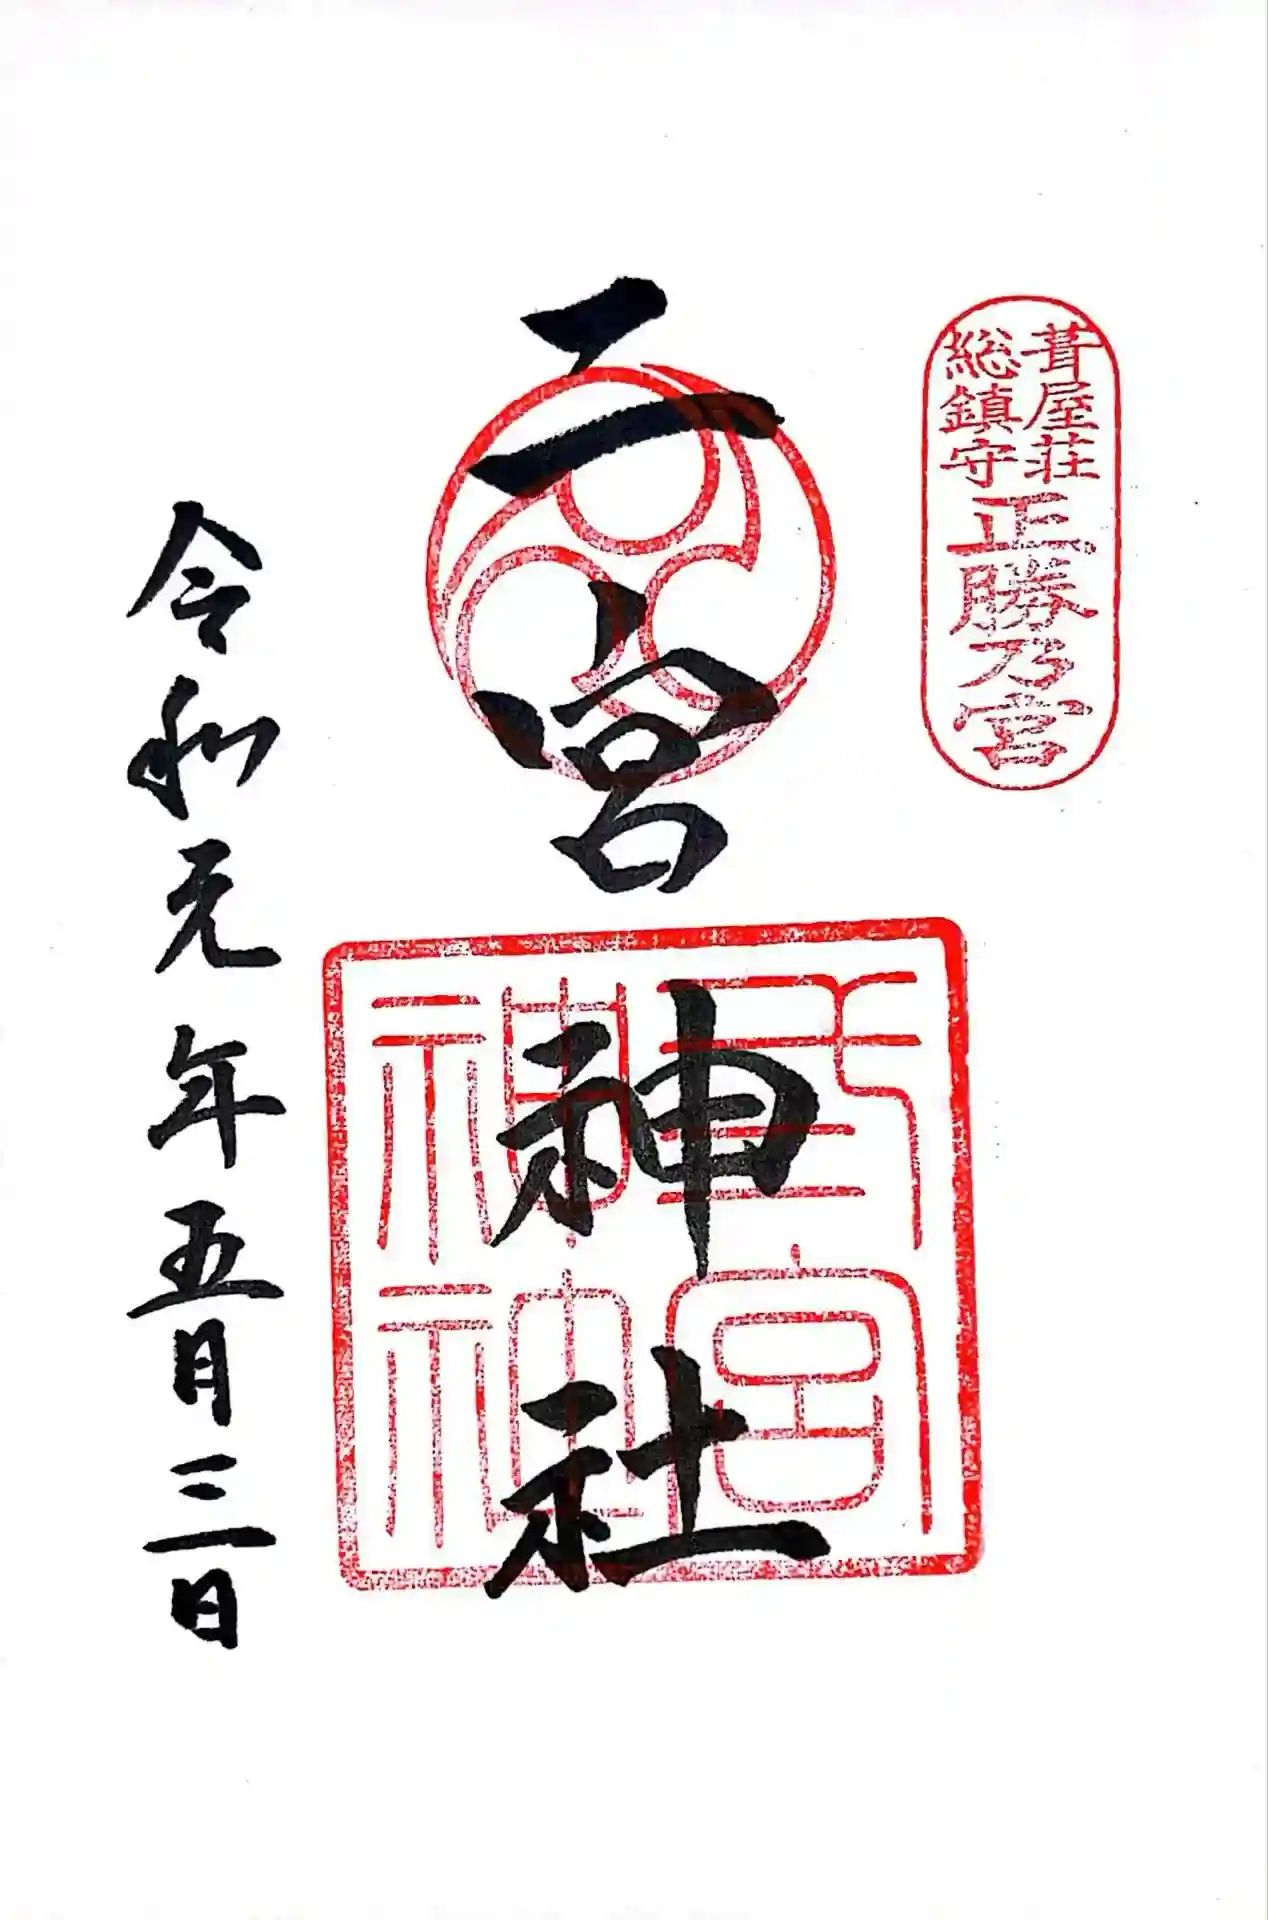 葺屋荘
総鎮守
正勝乃宮
二宮神社
令和元年五月三日